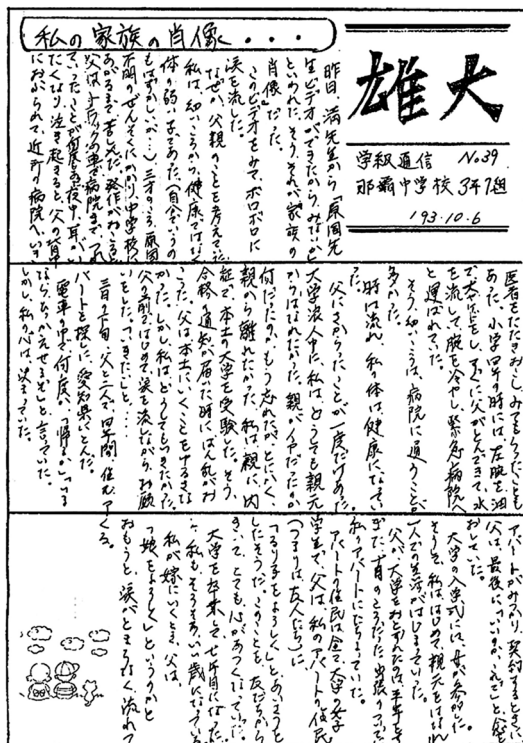 大雄
学級通信 No.39
那覇中学校3年7組
'93.10.6
私の家族の肖像・・・
昨日、満先生から「原国先
生ビデオができたから、みなかと
といわれた。そう、それが「家族の
肖像」だった。
このビデオをみて、ボロボロに
涙を流した。
なぜか、父親のことを考えてた。
私は、幼いころから、健康ではなく
体の弱い子であった(自分でいうの
もはずかしいが…)三才のころ、原因
不明のぜんそくにかかり、中学校に
あがるまで苦しんだ。発作がおこると
父は、
たくなり泣き起きると、父の背中
におぶられて、近所の病院へいき
医者をたたきおこしみてもらったことも
あった。小学四年の時には、左腕を油
で大やけどをし、すぐに父がとんできて、水
を流して腕を冷やし、緊急病院へ
と運ばれていった。
そう、幼いころは、病院に通うことが
多かった。
時は流れ、私の体は健康になってい
った。
父にさからったことが一度だけあった。
大学浪人中に、私は、どうしても親元
からはなれたかった。親がイヤだったか
何だったのかもう忘れたが、とにかく、
親から離れたかった。私は、親に内
証で、本土の大学を受験した。そう、
合格の通知が届いた時には大乱がお
こった。父は本土にいくことをゆるさな
かった。しかし、私は、どうしてもいきたかった。
父の前ではじめて涙を流しながらお願
いをした。「いきたい」と…
三月三十日、父と二人で、四年間住むア
パートを探しに、愛知県にとんだ。
電車の中で何度も、「帰るか」「いま
ならひっかえせるぞ」と言っていた。
しかし、私の心は、決まっていた。
アパートがみつかり、契約するときに
父は、最後に、「いいのか、これで」と念を
おしていた。
大学の入学式には、母が参加した。
そうそう、私は、はじめて、親元をはなれ
一人での生活がはじまっていた。
父が、大学をおとずれたのは、半年すぎ
た、十月のころだった。出張のついでで
私のアパートにたちよっていた。
アパートの住民は全て大学の女子
学生で、父は、私のアパートの住民
(つまりは、友人たち)に
「るり子をよろしく」とあいさつを
したそうだ。このことを友だちから
きいて、とても、心があつくなっていた。
大学を卒業して七年目になった。
今、私も、そうそう、いい歳になっている。
私が、嫁にいくとき、父は、
「娘をよろしく」というのかと
おもうと、涙がとまらなく流れて
くる。